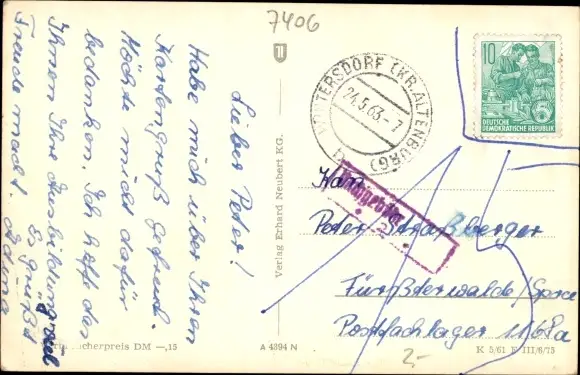 7406
Lieber Peter!
Habe mich über Ihren
Kartengruß gefreut.
Möchte mich dafür
bedanken. Ich hoffe das
Ihnen Ihre Ausbildung viel
Freude macht.
Es grüßt
Verlag Erhard Neubert KG.
TERSDORF (KR. ALTENBURG)
24.5.63-7
10
DEUTSCHE
DEMOKRATISCHE REPUBLIK
Nachgebühr
Peter Straßberger
Fürstenwalde/Spree
Postfach
cherpreis DM —,15
A 4394 N
K 5/61 F III/6/75
2,-